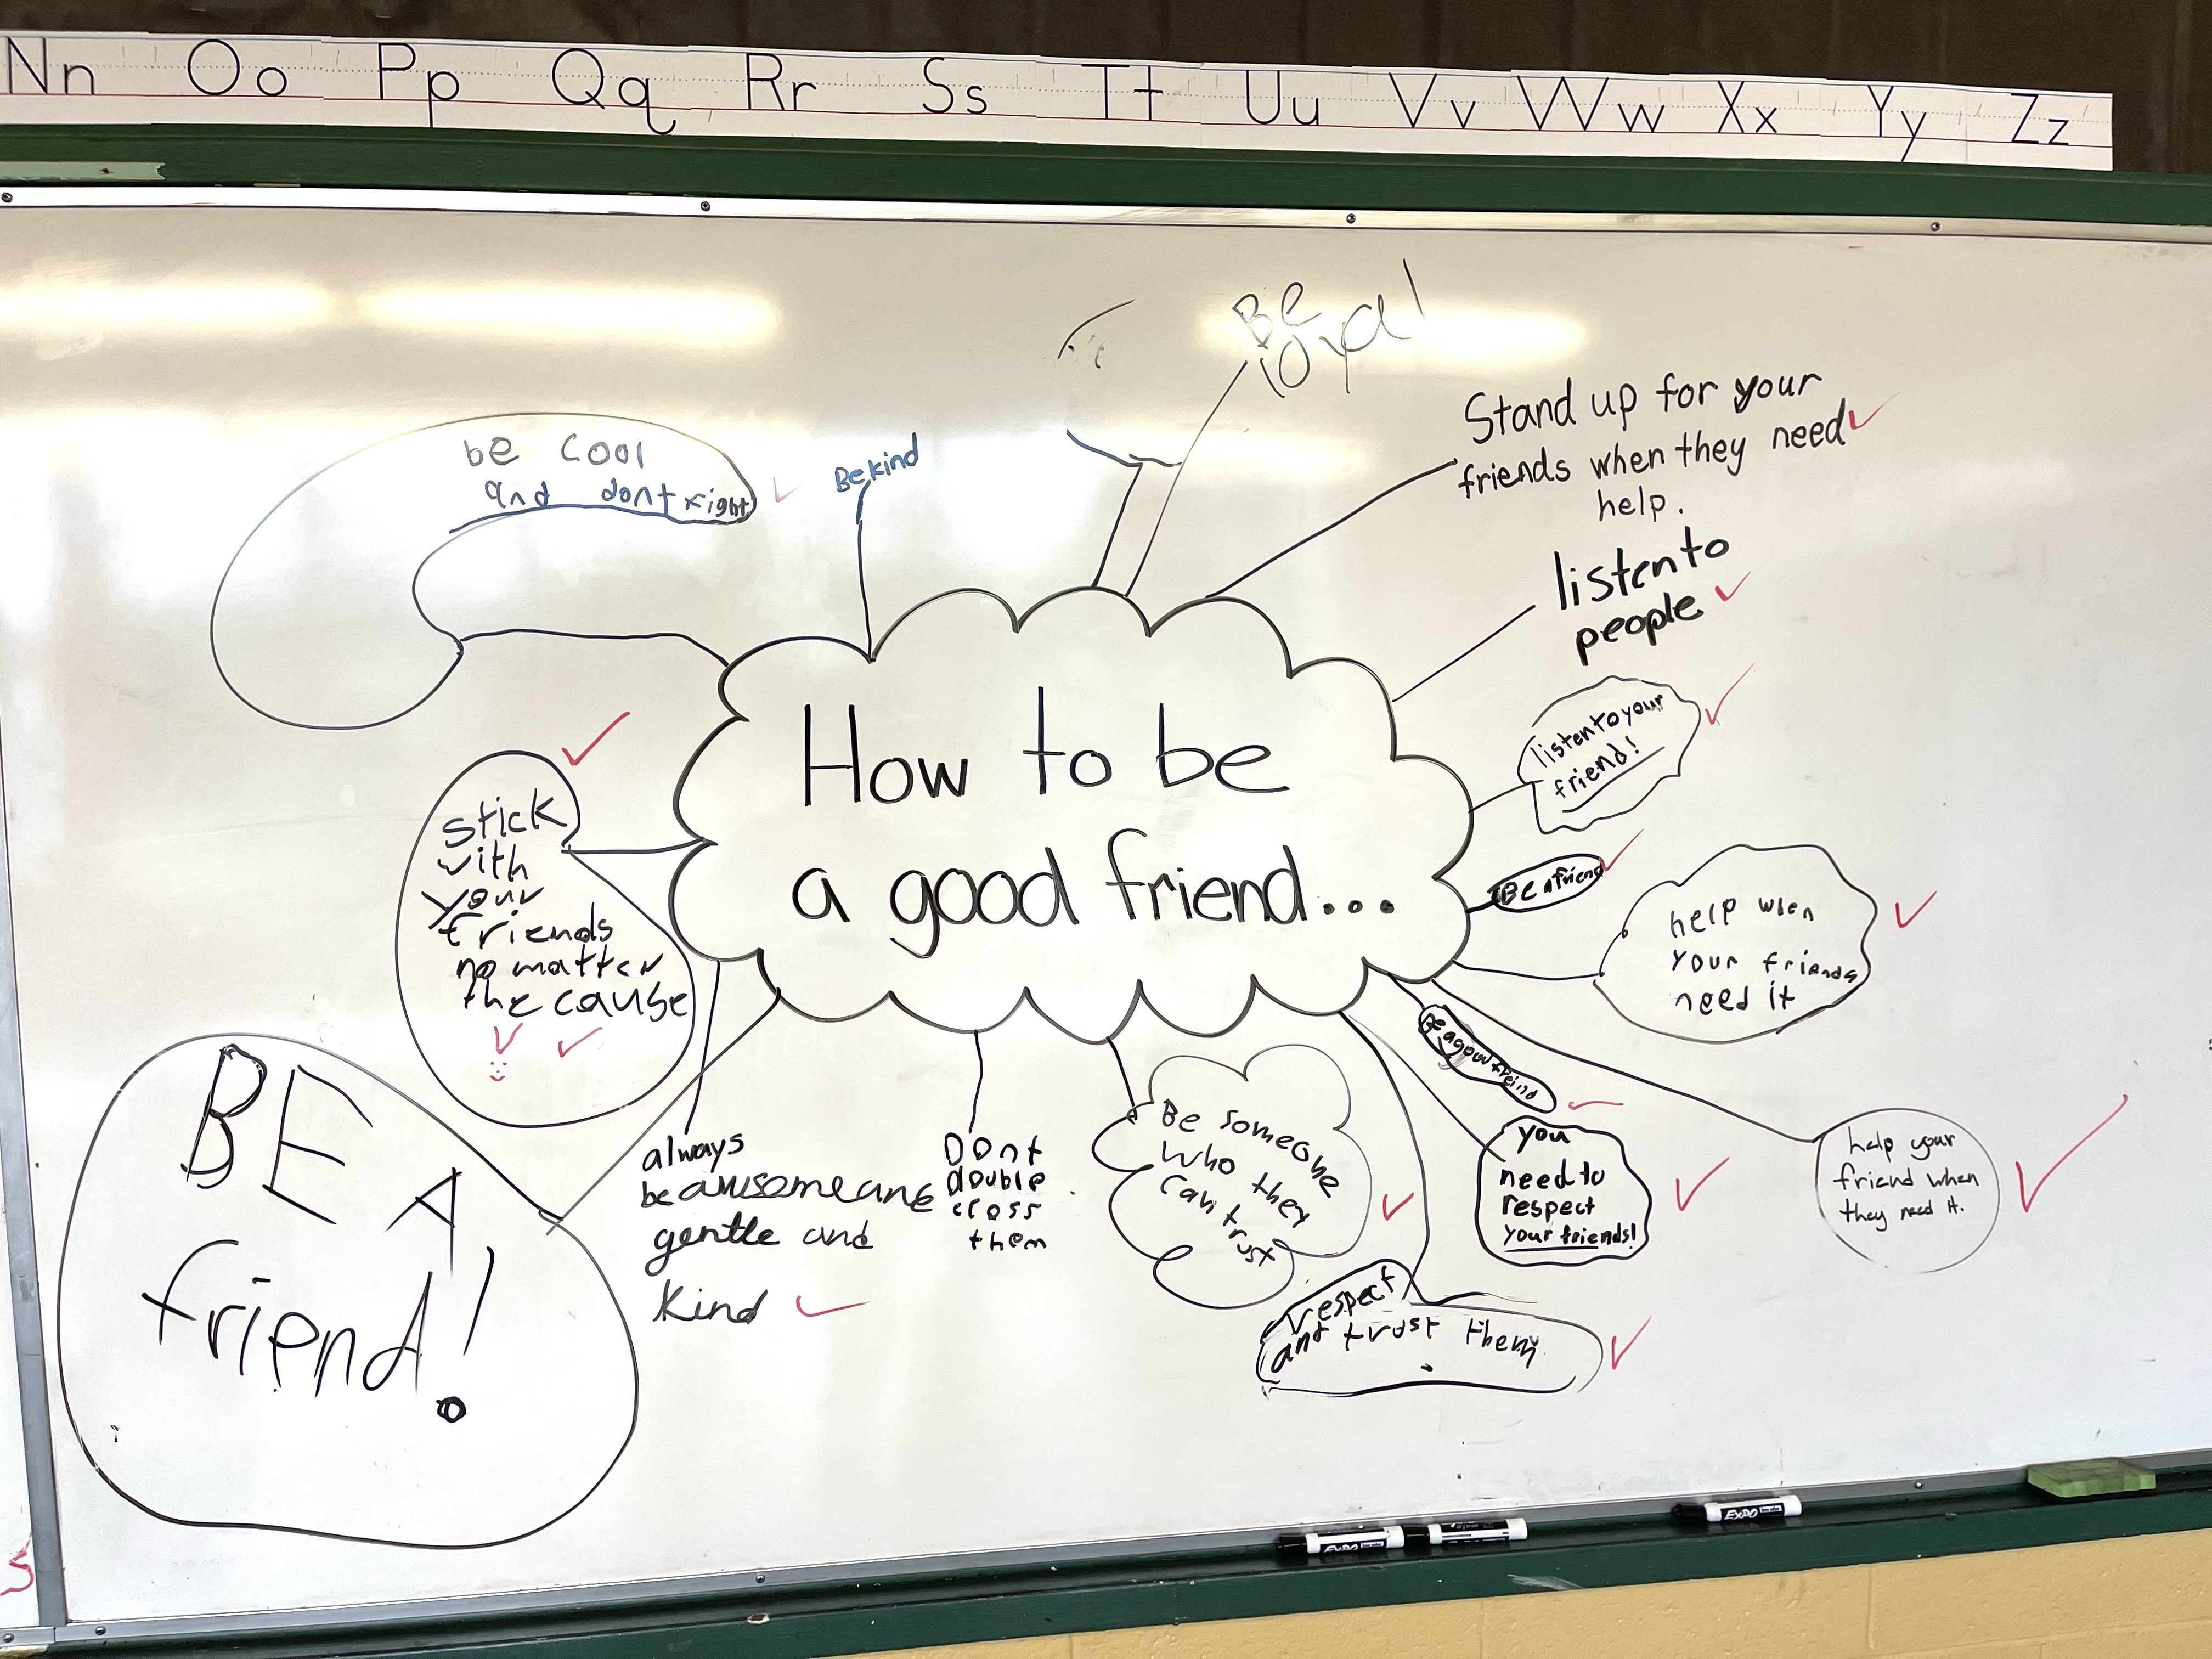 Nn Oo Pp Qq Rr Ss Tt Uu Vv Ww Xx Yy Zz
Be
loyal
Stand up for your
friends when they need
help.
be cool
and dont
Be kind
listen to
people
listen to your
friend!
How to be
a good friend...
stick
with
your
friends
no matter
the cause
Be a friend
help when
your friends
need it
Be a good freind
BE A
friend!
always
be awsome and
gentle and
kind
Dont
double
cross
them
Be someone
who they
can trust
you
need to
respect
your friends!
help your
friend when
they need it.
respect
ant trust them
.
EXPO
EXPO
S